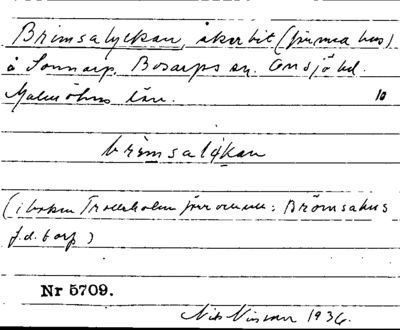 Brimsalyckan, åkerbit (finnes hus)
å Sonnarp, Bosarps sn. Onsjö hd.
Malmöhus län. 10
brimsalykan
(i boken Trolleholm förr o nu: Brömsahus
f.d. torp)
Nr 5709.
Nils Nilsson 1936.